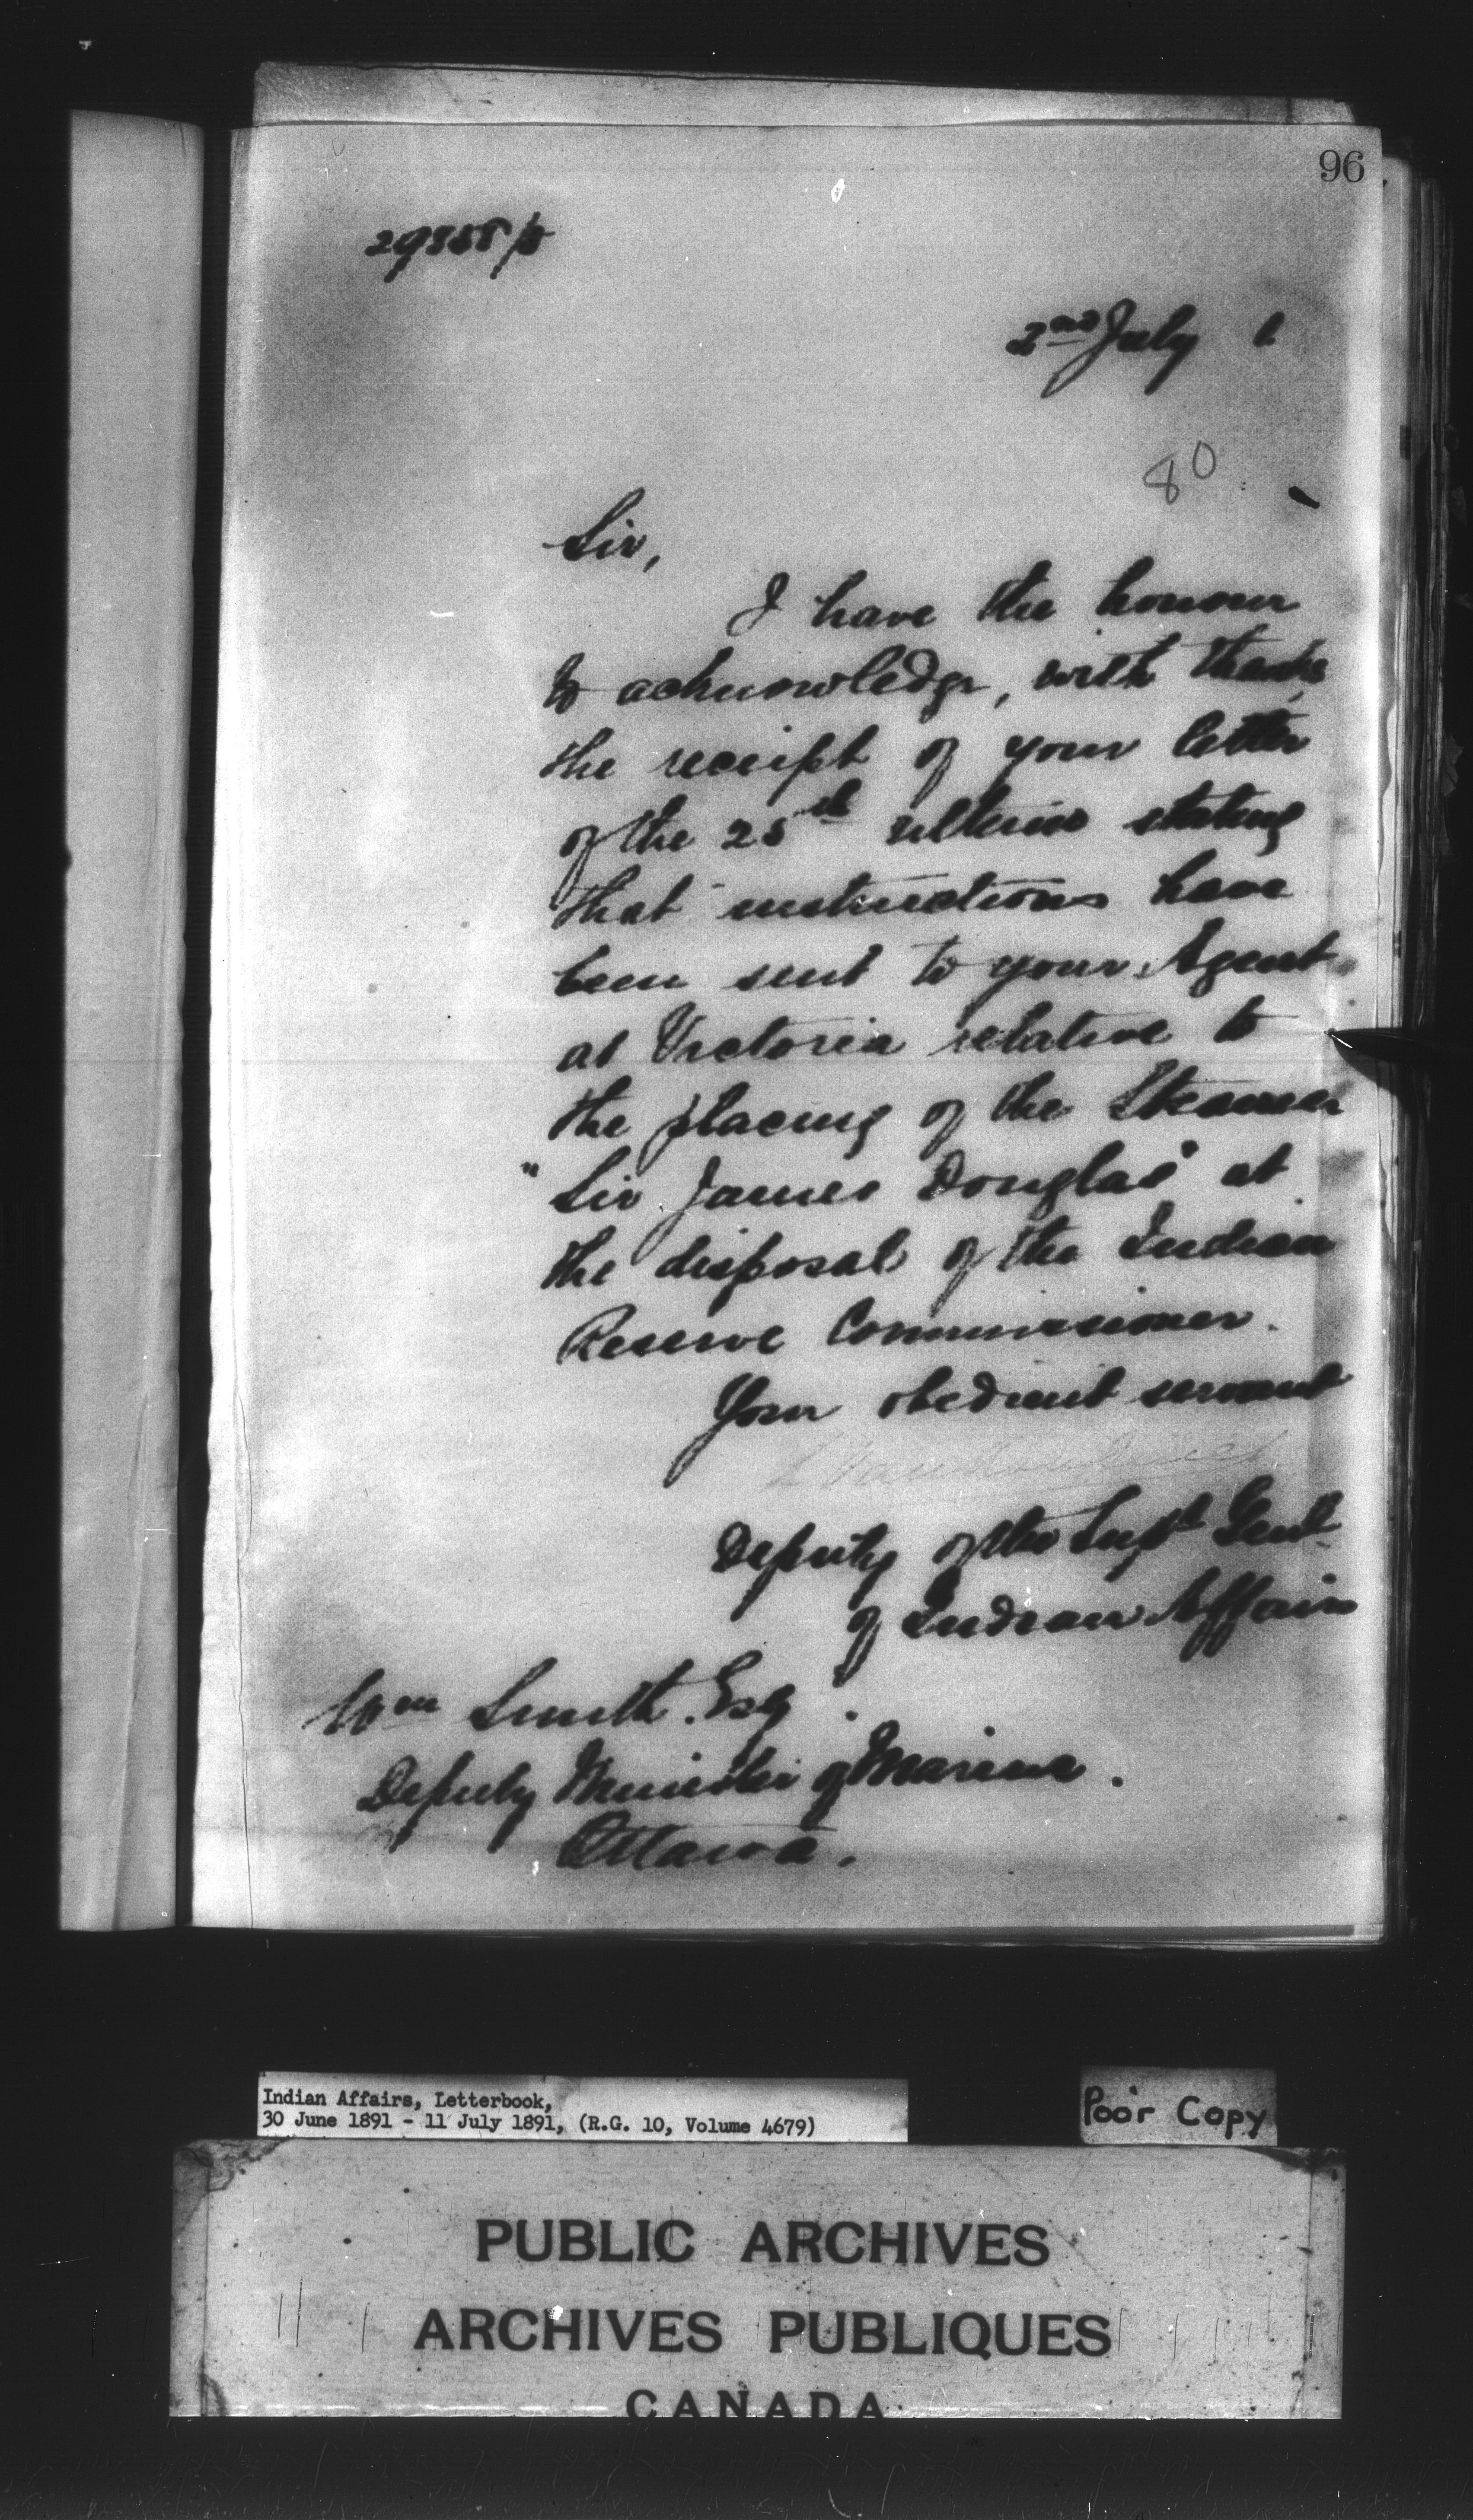 96
2nd July 1
80
Sir,
I have the honour
to acknowledge, with thanks,
the receipt of your letter
of the 25th ultimo stating
that instructions have
been sent to your Agent
at Victoria relative to
the placing of the Steamer
"Sir James Douglas" at
the disposal of the Indian
Reserve Commissioner.
Your obedient servant
L. Vankoughnet
Deputy of the Supt. Genl.
of Indian Affairs
Wm Smith. Esq.
Deputy Minister of Marine.
Ottawa.
Indian Affairs, Letterbook,
30 June 1891 - 11 July 1891, (R.G. 10, Volume 4679)
Poor Copy
PUBLIC ARCHIVES
ARCHIVES PUBLIQUES
CANADA